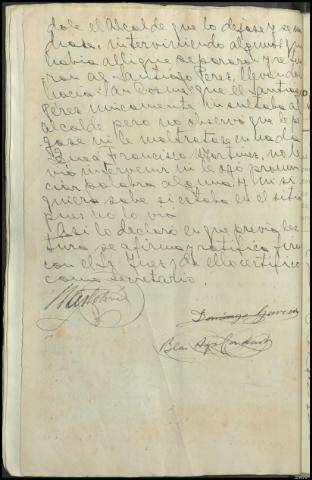 dole el Alcalde que lo dejase y se ma
chase, interviniendo algunos que
habia alli que separaron y retira
ron a Santiago Perez, llevando
hacia San Cosme que el Santiago
Perez unicamente insultaba al
alcalde pero no observó que le pe
gase ni le maltratase en nada
Que a Francisco Martinez, no le
vió intervenir ni le oyó pronun
ciar palabra alguna, y ni si
quiera sabe si estaba en el sitio
pues no lo vio
Asi lo declaró en que previa lec
tura se afirma y ratifica firma
con el Sr Juez, de ello certifico
como secretario
Domingo Garcia
Blas